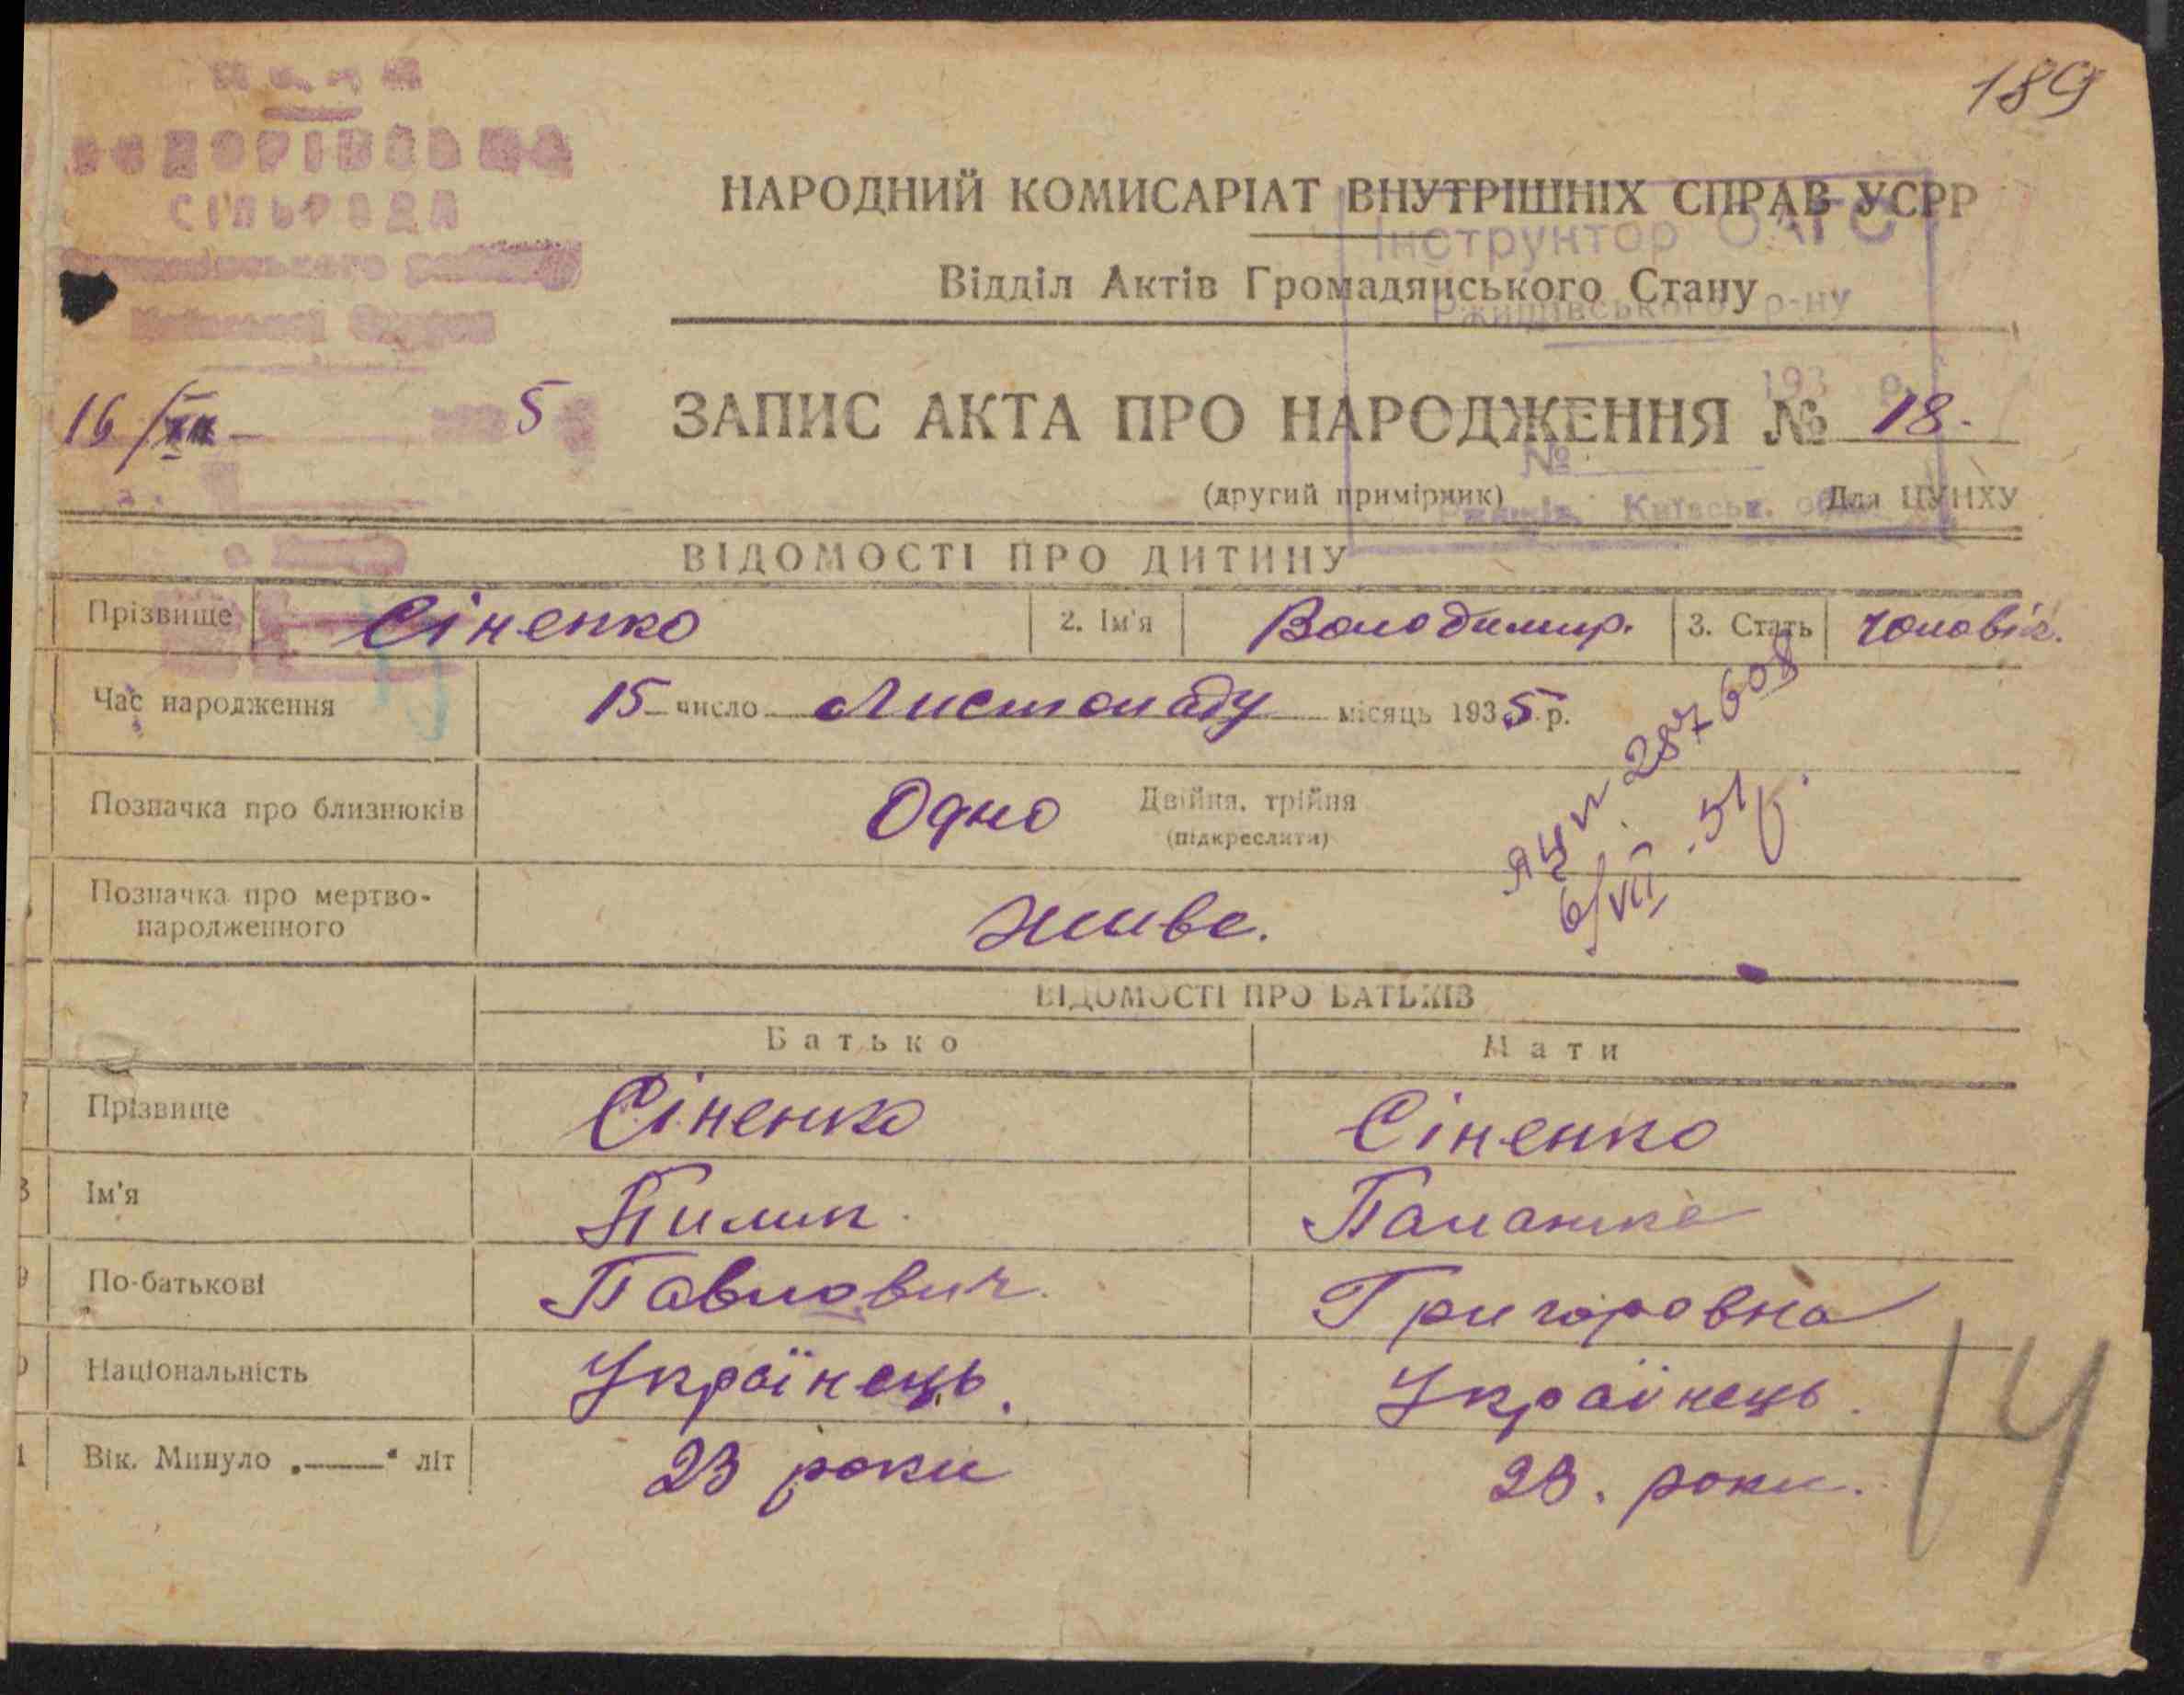 189
СІЛЬРАДА
НАРОДНИЙ КОМИСАРІАТ ВНУТРІШНІХ СПРАВ УСРР
Інструктор ОАГС
Відділ Актів Громадянського Стану
Ржищівського р-ну
193 р.
16/XII 5
ЗАПИС АКТА ПРО НАРОДЖЕННЯ № 18.
№
(другий примірник) Для ЦУНХУ
Київськ.
ВІДОМОСТІ ПРО ДИТИНУ
Прізвище Сіненко 2. Ім'я Володимир. 3. Стать чоловік.
Час народження 15 число Листопаду місяць 1935 р.
Позначка про близнюків Одно Двійня, трійня
(підкреслити)
287608
6/VII-51р.
Позначка про мертво-
народженного Живе.
ВІДОМОСТІ ПРО БАТЬКІВ
Батько Мати
Прізвище Сіненко Сіненко
Ім'я Пилип. Палажка
По-батькові Павлович. Григоровна
Національність Українець. Українець.
Вік. Минуло „——“ літ 23 роки 23. роки.
14